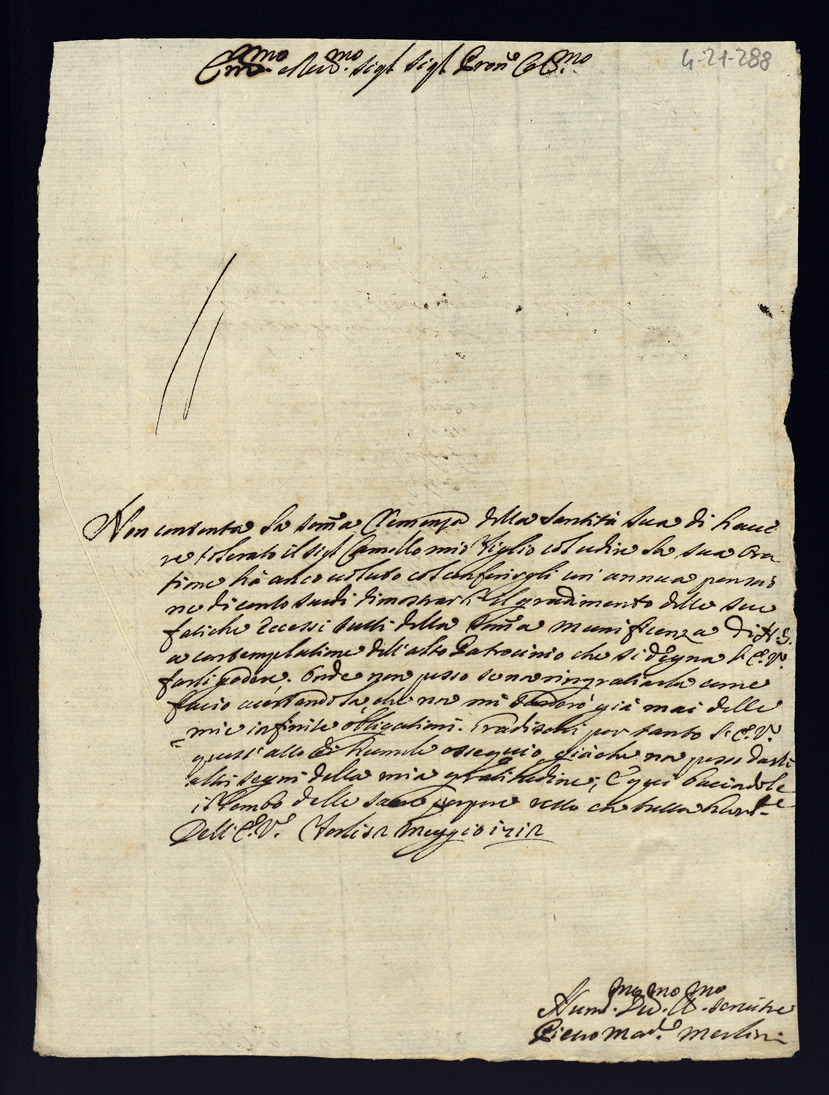 Em.mo Rev.mo Sig.r Sig.r Pron.e Col.mo
4-21-288
Non contenta la som̃a Clemenza della Santità Sua di have
re tolerato il Sig.r Camillo mio Figlio col udire la sua Ora
tione hà anco voluto col conferirgli un' annua pensio
ne di cento scudi dimostrarli il gradimento delle sue
fatiche eccessi tutti della som̃a munificenza di N. S.
a contemplatione dell'alto Patrocinio che si degna l'E. V.
farli godere. Onde non posso se non ringratiarla come
faccio accertandola, che non mi scorderò già mai delle
mie infinite obligationi. Gradischi per tanto l'E. V.
quest'atto di humile ossequio giache non posso darli
altri segni della mia gratitudine; E qui baciandole
il lembo delle sacre porpore resto con tutta
Dell'E. V. Forlì 12 Maggio 1712
Hum.mo Dev.mo Obl.mo Servitre
Pietro Mar.a Merlini